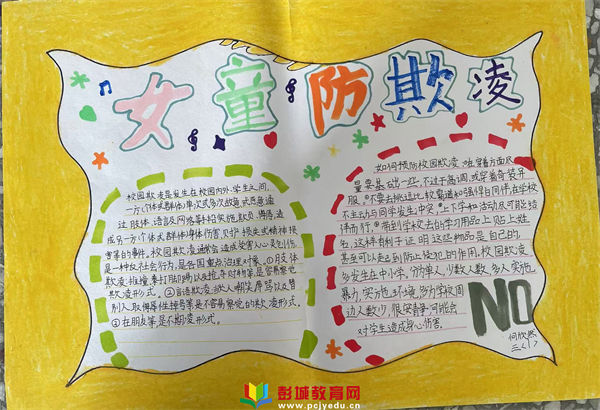 女童防欺凌
校园欺凌是发生在校园内外、学生之间,
一方(个体或群体)单次或多次故意或恶意通
过肢体、语言及网络等手段实施欺负,侮辱,造
成另一方个体或群体身体伤害,财产损失或精神损
害等的事件。校园欺凌通常会造成受害人心灵创伤,
是一种反社会行为,是各国重点治理对象。①肢体
欺凌:推撞拳打脚踢以及抢夺财物等,是容易察觉
欺凌形式。②言语欺凌:当众嘲笑辱骂以及替
别人取侮辱性绰号等是不容易察觉的欺凌形式。
如何预防校园欺凌
服。"不要去挑逗比较霸道和强悍日同伴,在学校
不主动与同学发生冲突。"上下学和活动尽可能结
伴而行。"带到学校去的学习用品上贴上姓
名,这样有利于证明这些物品是自己的,
甚至可以起到防止侵犯的作用。校园欺凌
多发生在中小学,分单人,少数人欺多人实施
暴力,实施环境,多为学校周
边人数少,很安静,可能会
对学生造成身心伤害。
NO
何欣然
彭城教育网
www.pcjyedu.cn